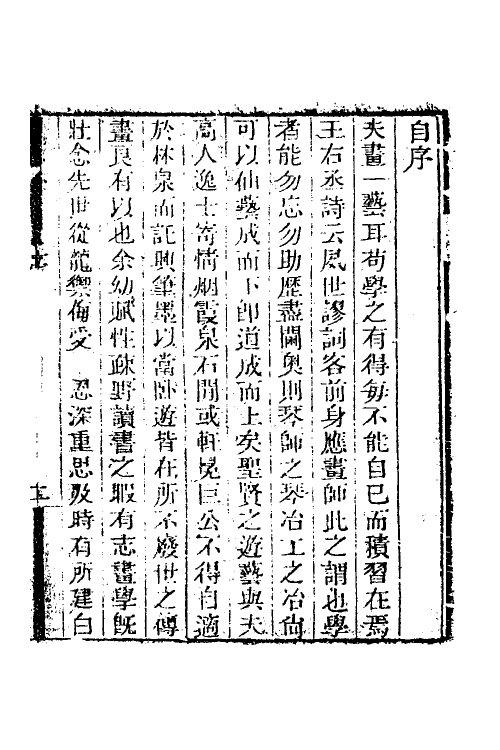 自序
夫畫一藝耳苟學之有得每不能自已而積習在焉
王右丞詩云夙世謬詞客前身應畫師此之謂也學
者能勿忘勿助歷盡閫奧則琴師之琴冶工之冶尙
可以仙藝成而下卽道成而上矣聖賢之遊藝與夫
高人逸士寄情烟霞泉石閒或軒冕巨公不得自適
於林泉而託興筆墨以當臥遊皆在所不廢世之傳
畫良有以也余幼賦性疎野讀書之暇有志畫學旣
壯念先世從龍禦侮受 恩深重思及時有所建白